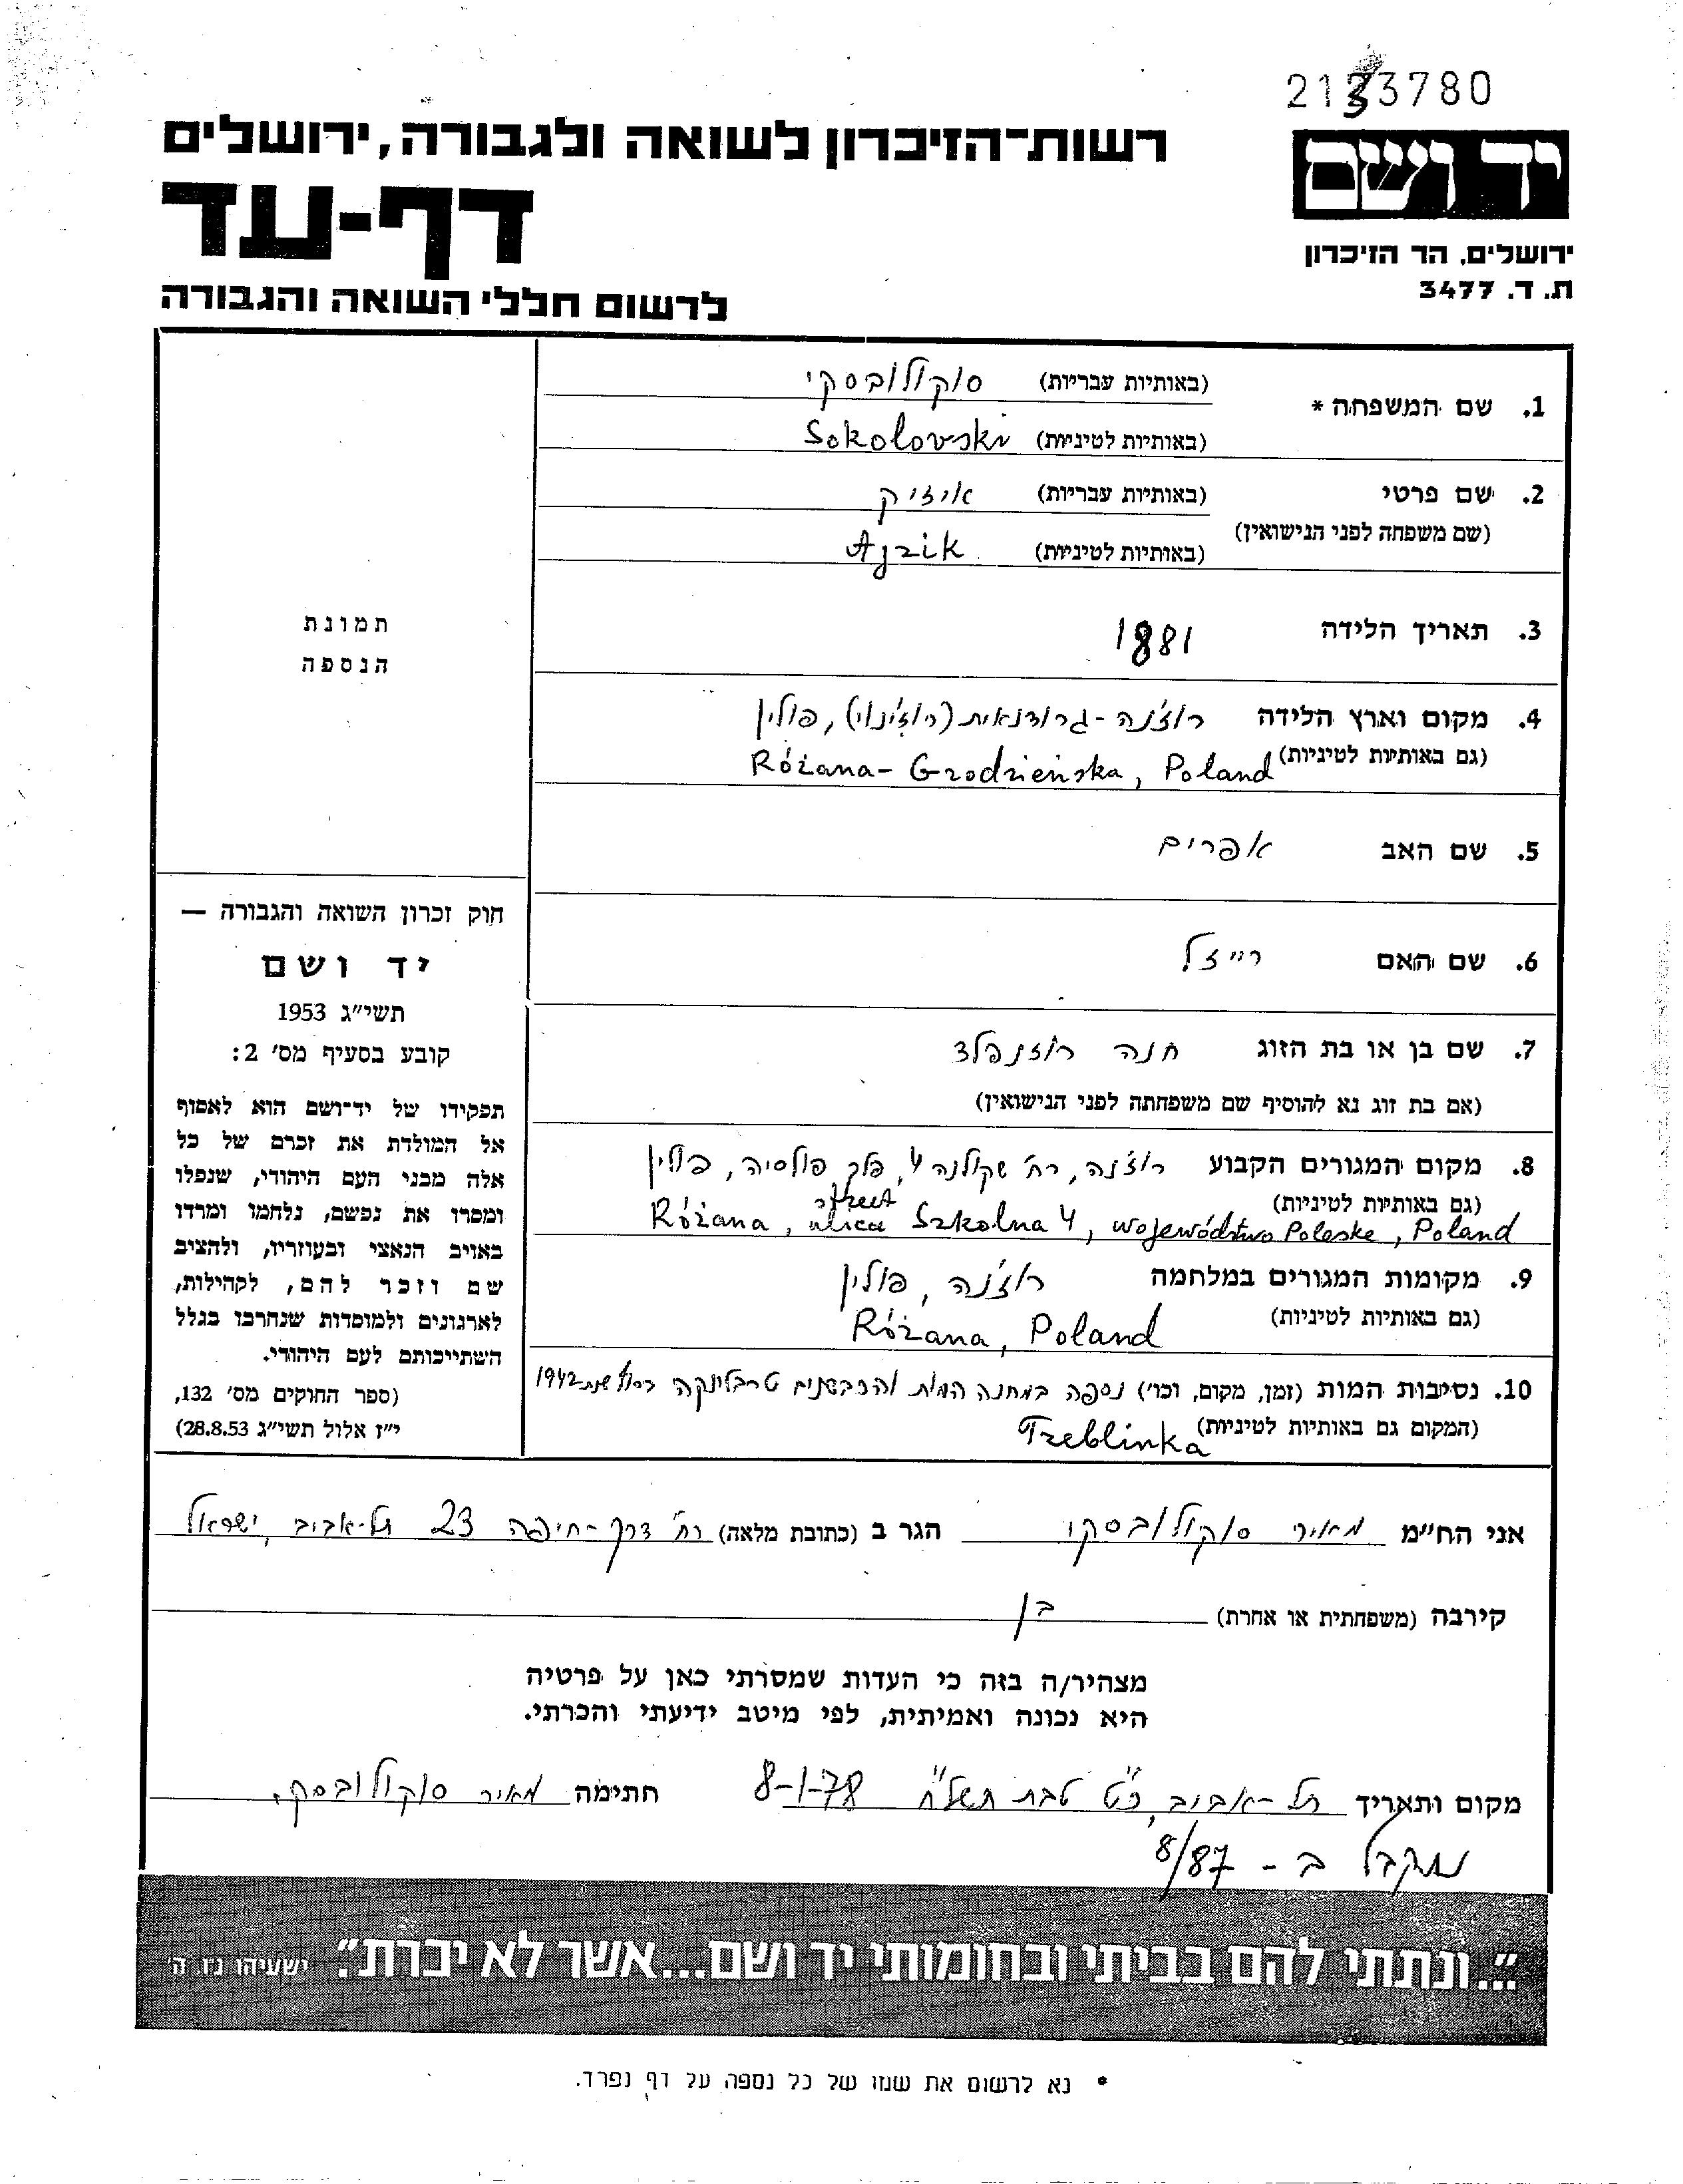 2133780
יד ושם
ירושלים, הר הזיכרון
ת. ד. 3477
רשות־הזיכרון לשואה ולגבורה, ירושלים
דף-עד
לרשום חללי השואה והגבורה
1. שם המשפחה * (באותיות עבריות) סוקולובסקי
(באותיות לטיניות) Sokolovski
2. שם פרטי (באותיות עבריות) איזיק
(שם משפחה לפני הנישואין)
(באותיות לטיניות) Ajzik
3. תאריך הלידה 1881
4. מקום וארץ הלידה רוז'נה-גרודנאית (רוז'ינוי), פולין
(גם באותיות לטיניות) Różana-Grodzieńska, Poland
5. שם האב אפרים
6. שם האם רייזל
7. שם בן או בת הזוג חנה רוזנפלד
(אם בת זוג נא להוסיף שם משפחתה לפני הנישואין)
8. מקום המגורים הקבוע רוז'נה, רח' שקולנה 4, פלך פולסיה, פולין
(גם באותיות לטיניות) street
Różana, ulica Szkolna 4, województwo Poleske, Poland
9. מקומות המגורים במלחמה רוז'נה, פולין
(גם באותיות לטיניות) Różana, Poland
10. נסיבות המות (זמן, מקום, וכו') נספה במחנה המות והכבשנים טרבלינקה בסוף שנת 1942
(המקום גם באותיות לטיניות) Treblinka
תמונת
הנספה
חוק זכרון השואה והגבורה —
יד ושם
תשי"ג 1953
קובע בסעיף מס' 2:
תפקידו של יד־ושם הוא לאסוף
אל המולדת את זכרם של כל
אלה מבני העם היהודי, שנפלו
ומסרו את נפשם, נלחמו ומרדו
באויב הנאצי ובעוזריו, ולהציב
שם וזכר להם, לקהילות,
לארגונים ולמוסדות שנחרבו בגלל
השתייכותם לעם היהודי.
(ספר החוקים מס' 132,
י"ז אלול תשי"ג 28.8.53)
אני הח"מ מאיר סוקולובסקי הגר ב (כתובת מלאה) רח' דרך-חיפה 23 תל-אביב, ישראל
קירבה (משפחתית או אחרת) בן
מצהיר/ה בזה כי העדות שמסרתי כאן על פרטיה
היא נכונה ואמיתית, לפי מיטב ידיעתי והכרתי.
מקום ותאריך תל-אביב, כ"ט טבת תשל"ח 8-1-78 חתימה מאיר סוקולובסקי
נתקבל ב - 8/87
"...ונתתי להם בביתי ובחומותי יד ושם...אשר לא יכרת" ישעיהו נ"ו ה'
* נא לרשום את שמו של כל נספה על דף נפרד.